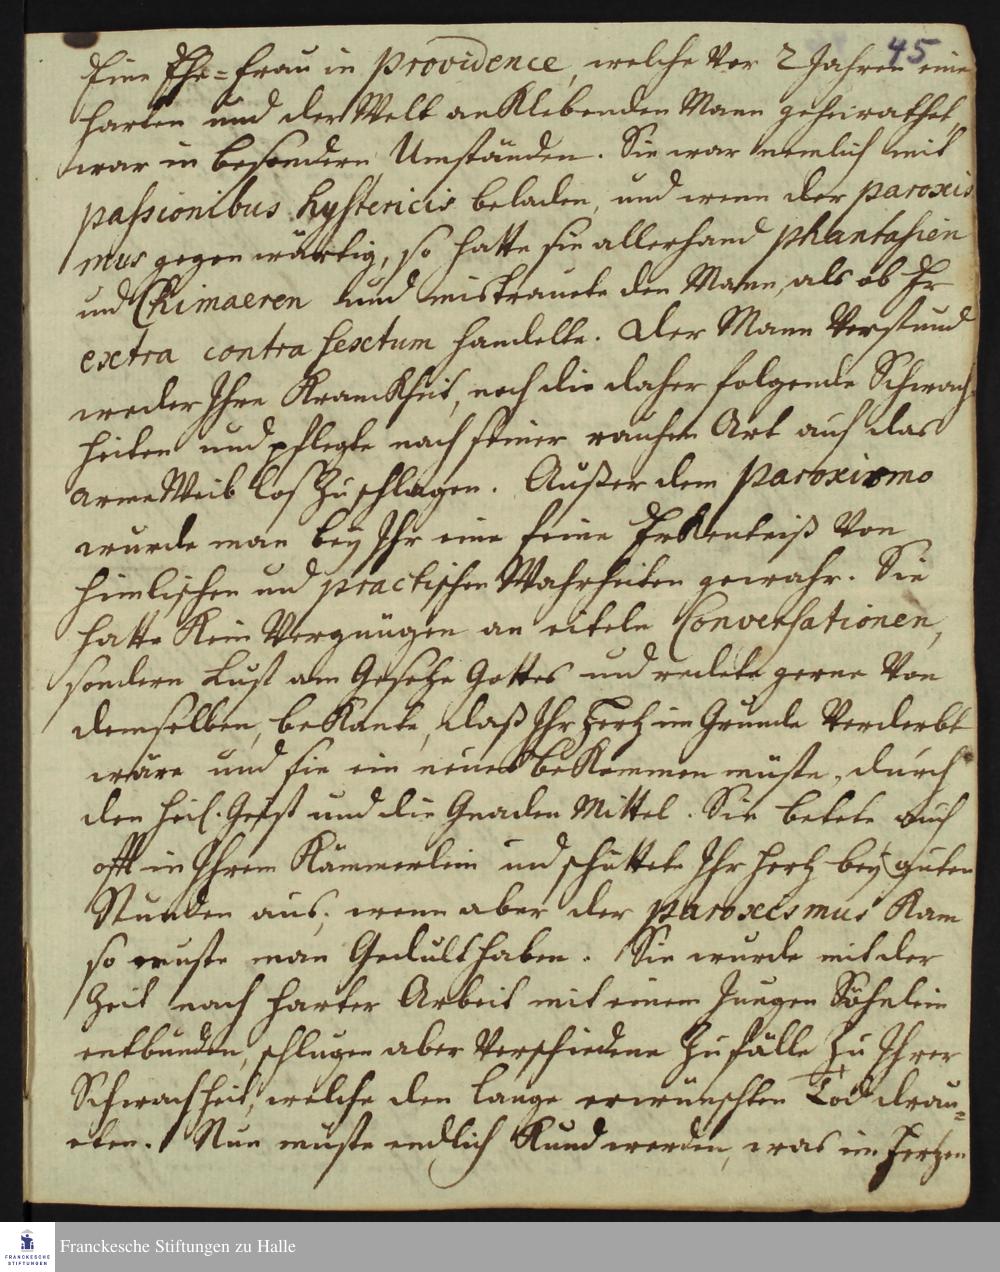 45
Eine Ehe-Frau in Providence, welche vor 2 Jahren eine
harten und der Welt anKlebenden Mann geheirathet,
war in besondern Umständen. Sie war nemlich mit
passionibus hystericis beladen, und wenn der paroxis
mus gegenwärtig, so hatte sie allerhand phantasien
und Chimaeren und mistrauete den Mann, als ob Er
extra contra sextum handelte. Der Mann verstund
weder Ihre KrancKheit, noch die daher folgende Schwach
heiten und pflegte nach seiner rauhen Art auf das
arme Weib loß zu schlagen. Außer dem paroxismo
wurde man bey Ihr eine feine ErKentniß von
himlischen und practischen Wahrheiten gewahr. Sie
hatte Kein Vergnügen an eiteln Conversationen,
sondern Lust am Gesetze Gottes und redete gerne von
demselben, beKante, daß Ihr Hertz im Grunde verderbt
wäre und sie ein neues beKommen müste, durch
den heil. Geist und die Gnaden Mittel. Sie betete auch
offt in Ihrem Kämmerlein und schüttete Ihr Hertz bey guten
Stunden aus; wenn aber der paroxismus Kam
so muste man Gedult haben. Sie wurde mit der
Zeit nach harter Arbeit mit einem Jungen Söhnlein
entbunden, schlugen aber verschiedene Zufälle zu Ihrer
Schwachheit, welche den lange erwünschten Tod drau-
eten. Nun muste endlich Kund werden, was im Hertzen
FRANCKESCHE
STIFTUNGEN
Franckesche Stiftungen zu Halle